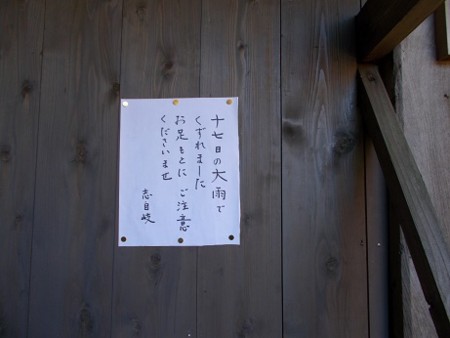 十七日の大雨で
くずれました
お足もとにご注意
くださいませ
志自岐